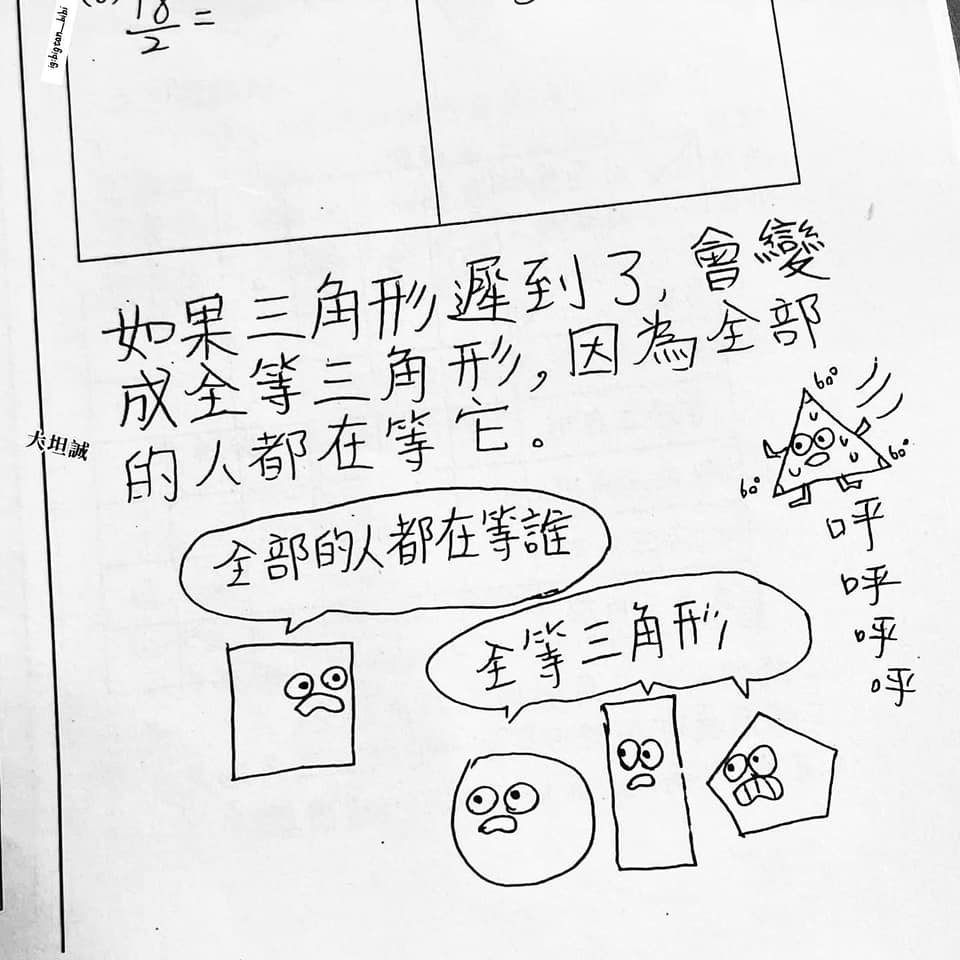 18
2 =
ig:bigtan_bibi
如果三角形遲到了,會變
成全等三角形,因為全部
的人都在等它。
大坦誠
60°
60°
60°
全部的人都在等誰
全等三角形
呼
呼
呼
呼